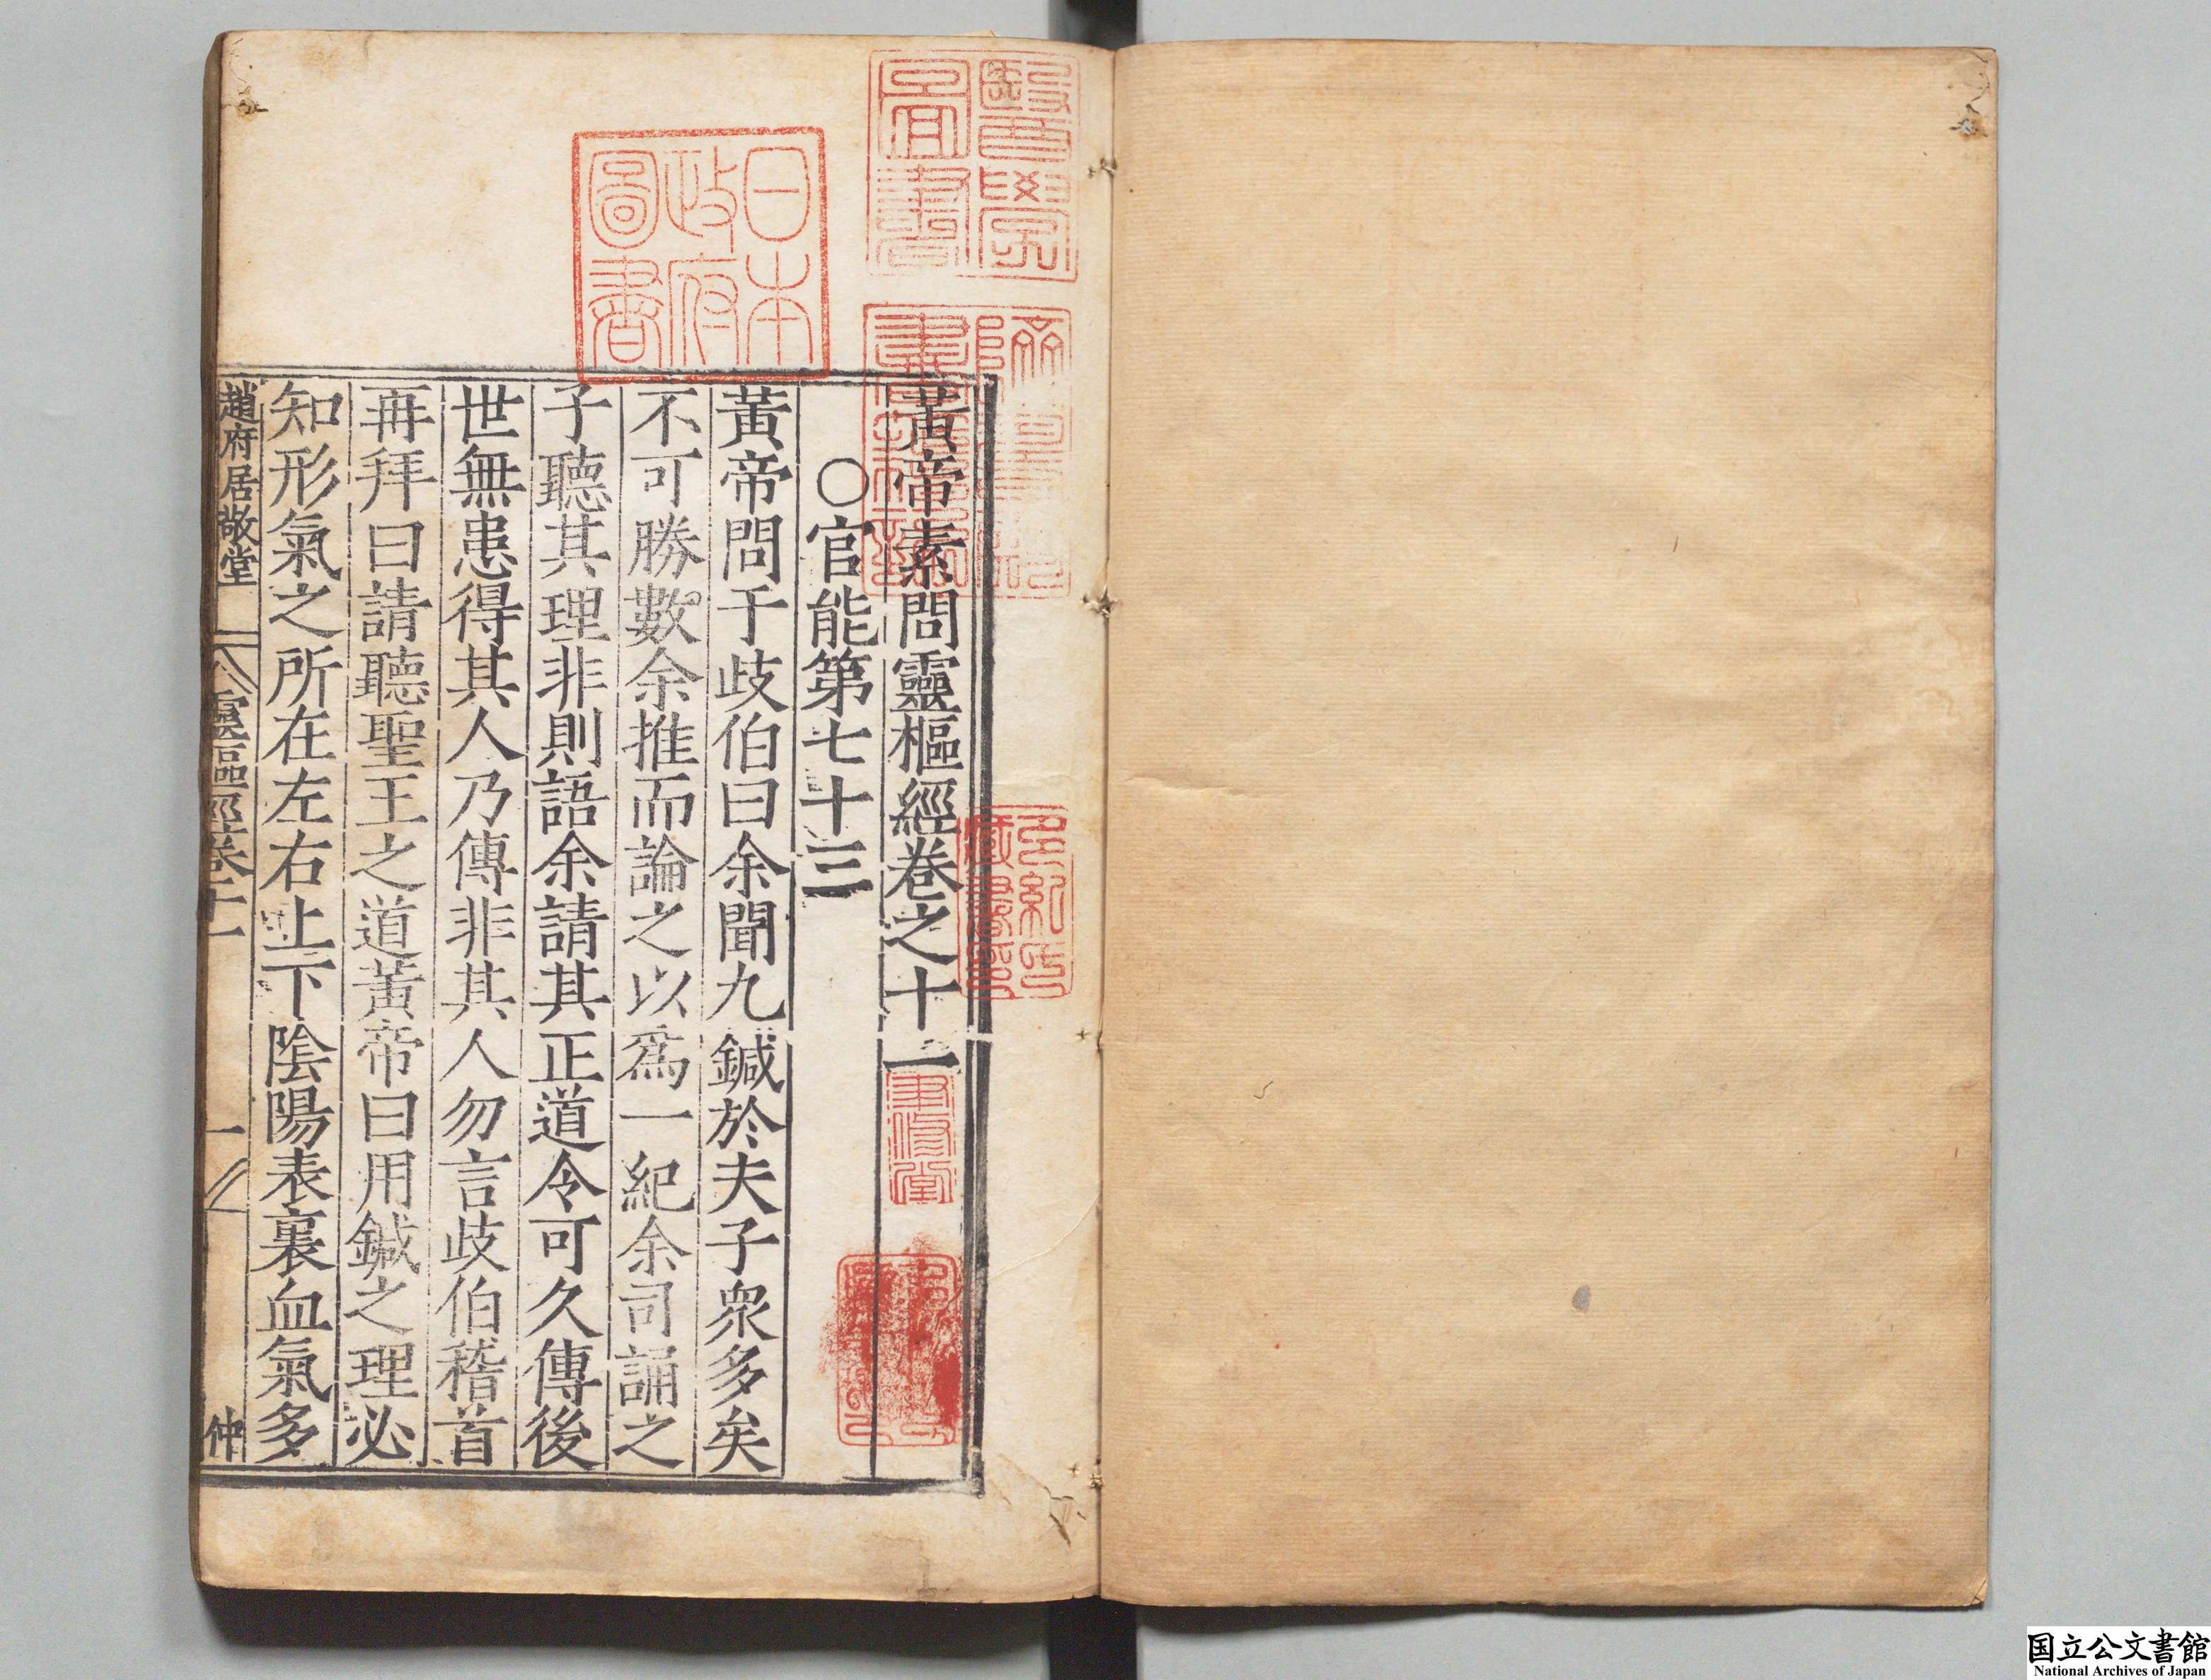 黃帝素問靈樞經卷之十一
○官能第七十三
黃帝問于歧伯曰余聞九鍼於夫子衆多矣
不可勝數余推而論之以爲一紀余司誦之
子聽其理非則語余請其正道令可久傳後
世無患得其人乃傳非其人勿言歧伯稽首
再拜曰請聽聖王之道黃帝曰用鍼之理必
知形氣之所在左右上下陰陽表裏血氣多
趙府居敬堂
靈樞經卷十一
一
仲
醫學
圖書
日本
政府
圖書
多紀氏
藏書印
国立公文書館
National Archives of Japan